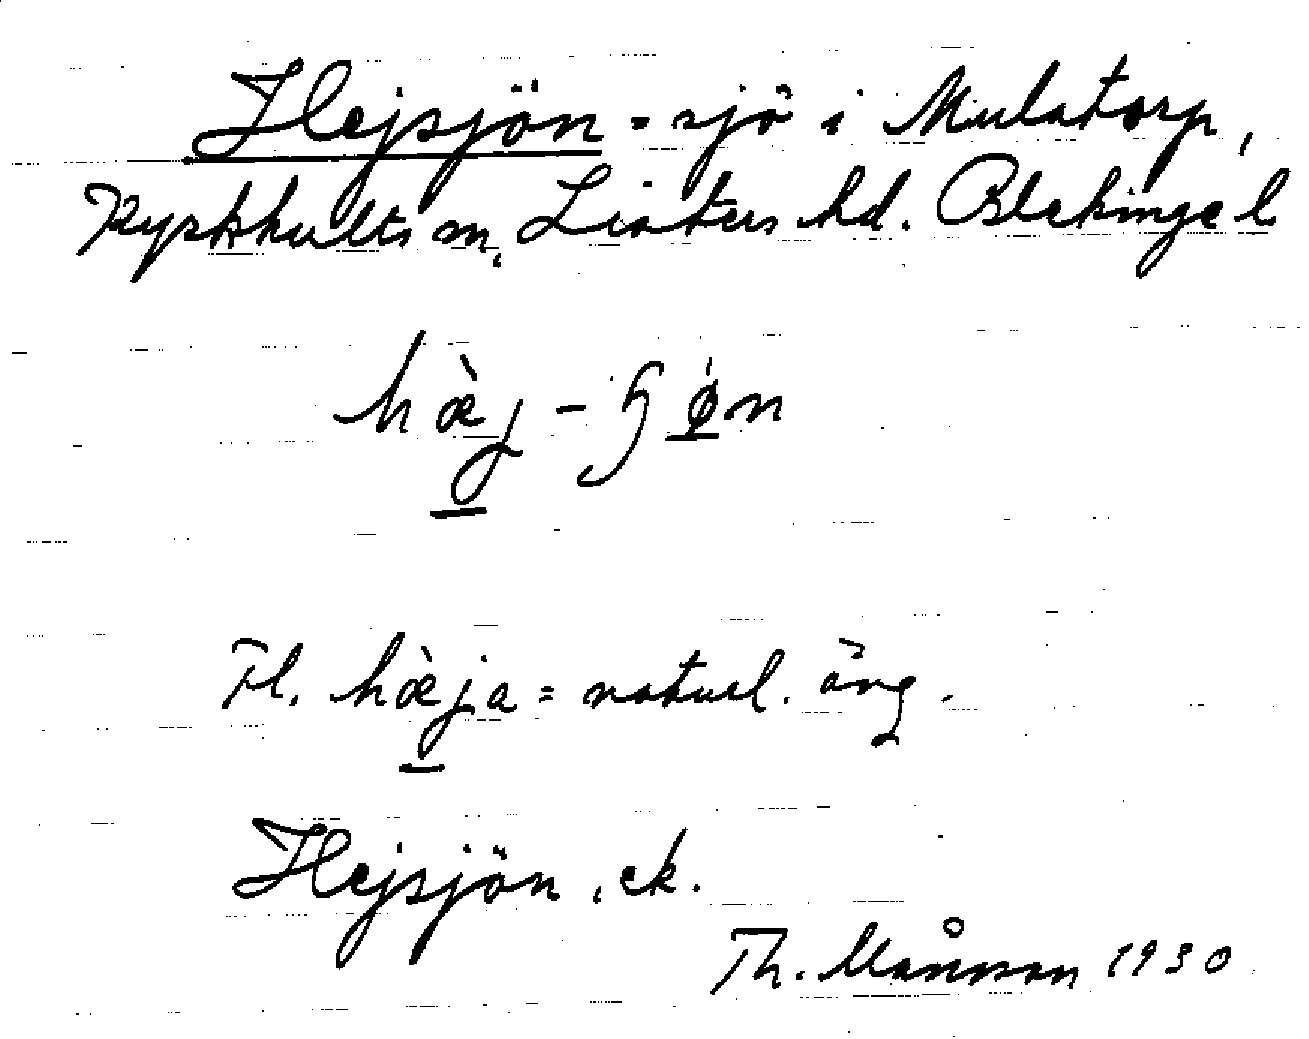 Hejsjön = sjö i Mulatorp,
Kyrkhults sn, Listers hd. Blekinge l
hæ̀j - ɧø̀n
Fl. hæ̀ja = naturl. äng.
Hejsjön, ek.
Th. Månsson 1930